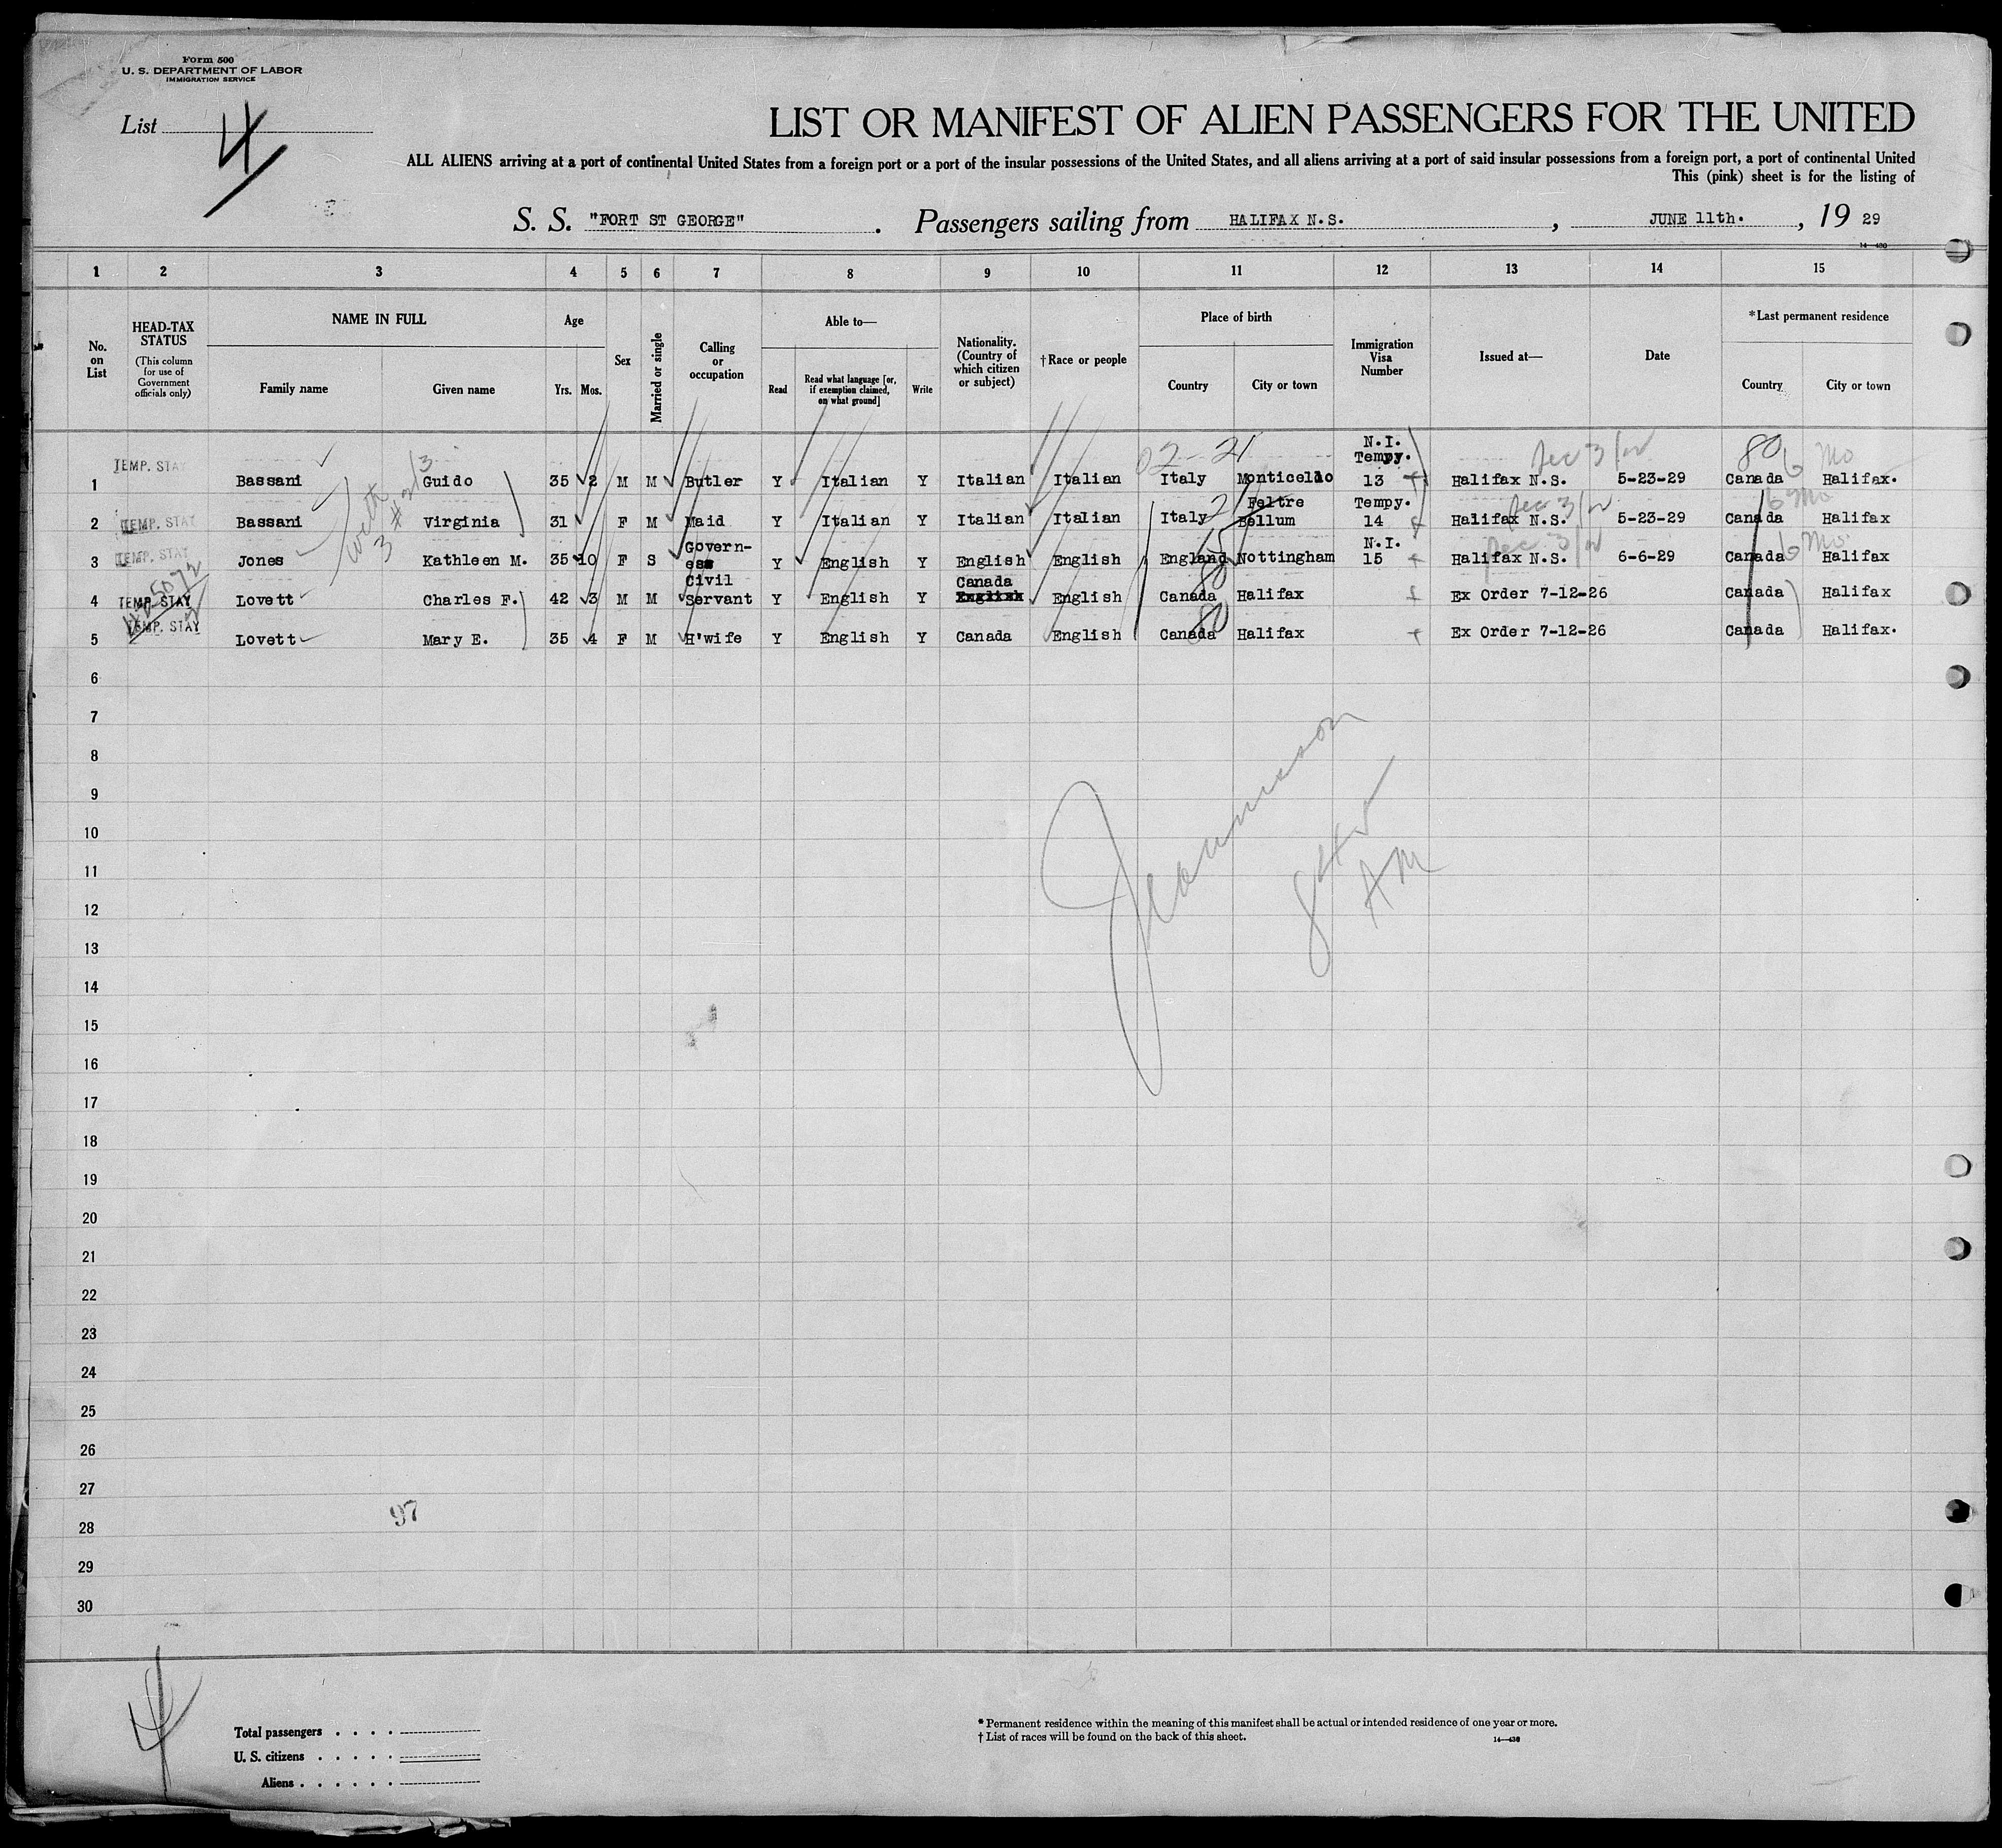 Form 500
U. S. DEPARTMENT OF LABOR
IMMIGRATION SERVICE
List 4
LIST OR MANIFEST OF ALIEN PASSENGERS FOR THE UNITED
ALL ALIENS arriving at a port of continental United States from a foreign port or a port of the insular possessions of the United States, and all aliens arriving at a port of said insular possessions from a foreign port, a port of continental United
This (pink) sheet is for the listing of
S. S. "FORT ST GEORGE". Passengers sailing from HALIFAX N.S., JUNE 11th., 19 29
14—430
1 2 3 4 5 6 7 8 9 10 11 12 13 14 15
No. on List
HEAD-TAX STATUS
(This column for use of Government officials only)
NAME IN FULL
Family name Given name
Age
Yrs. Mos.
Sex
Married or single
Calling or occupation
Able to—
Read
Read what language [or, if exemption claimed, on what ground]
Write
Nationality. (Country of which citizen or subject)
†Race or people
Place of birth
Country City or town
Immigration Visa Number
Issued at—
Date
*Last permanent residence
Country City or town
02-21 N.I. Dec 3/ 80 6 Mo
TEMP. STAY Tempy.
1 Bassani Guido 35 2 M M Butler Y Italian Y Italian Italian Italy Monticello 13 Halifax N.S. 5-23-29 Canada Halifax.
with 3 # 3
Feltre Tempy. Dec 3/ 6 Mo
2 TEMP. STAY Bassani Virginia 31 F M Maid Y Italian Y Italian Italian Italy Bellum 14 Halifax N.S. 5-23-29 Canada Halifax
Govern- N.I. Dec 3/ 6 Mo
3 TEMP. STAY Jones Kathleen M. 35 10 F S ess Y English Y English English England Nottingham 15 Halifax N.S. 6-6-29 Canada Halifax
Civil Canada 80
4 TEMP. STAY Lovett Charles F. 42 3 M M Servant Y English Y English English Canada Halifax Ex Order 7-12-26 Canada Halifax
80
5 TEMP. STAY Lovett Mary E. 35 4 F M H'wife Y English Y Canada English Canada Halifax Ex Order 7-12-26 Canada Halifax.
6
7
8
9
10
11
12
13
14
15
16
17
18
19
20
21
22
23
24
25
26
27
28
29
30
845
AM
97
4
Total passengers
U. S. citizens
Aliens
* Permanent residence within the meaning of this manifest shall be actual or intended residence of one year or more.
† List of races will be found on the back of this sheet.
14—430